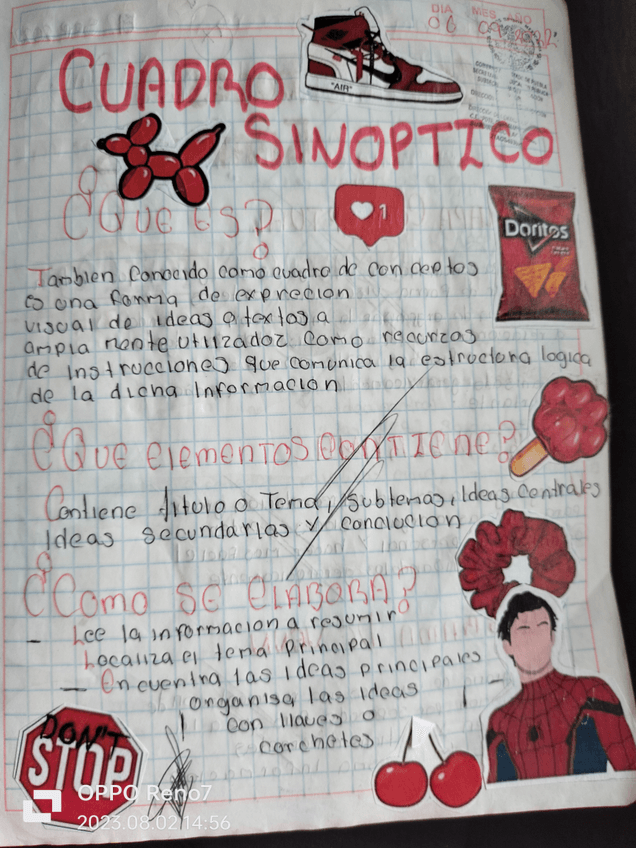 DIA MES AÑO
06
"AIR"
CUADRO
SINOPTICO
¿QUE ES?
1
Doritos
Tambien Conocido como cuadro de conceptos
es una forma de exprecion
visual de ideas o textos a
ampla mente utilizador como recurzas
de instrucciones que comunica la estructura logica
de la dicha informacion
¿Que elementos contiene?
Contiene titulo o Tema, subtemas, Ideas Centrales
Ideas secundarias y conclucion
¿Como se elabora?
- Lee la informacion a resumir
Localiza el tema Principal
- Encuentra las ideas principales
organisa las ideas
con llaves o
corchetes
DON'T
STOP
OPPO Reno7
2023.08.02 14:56